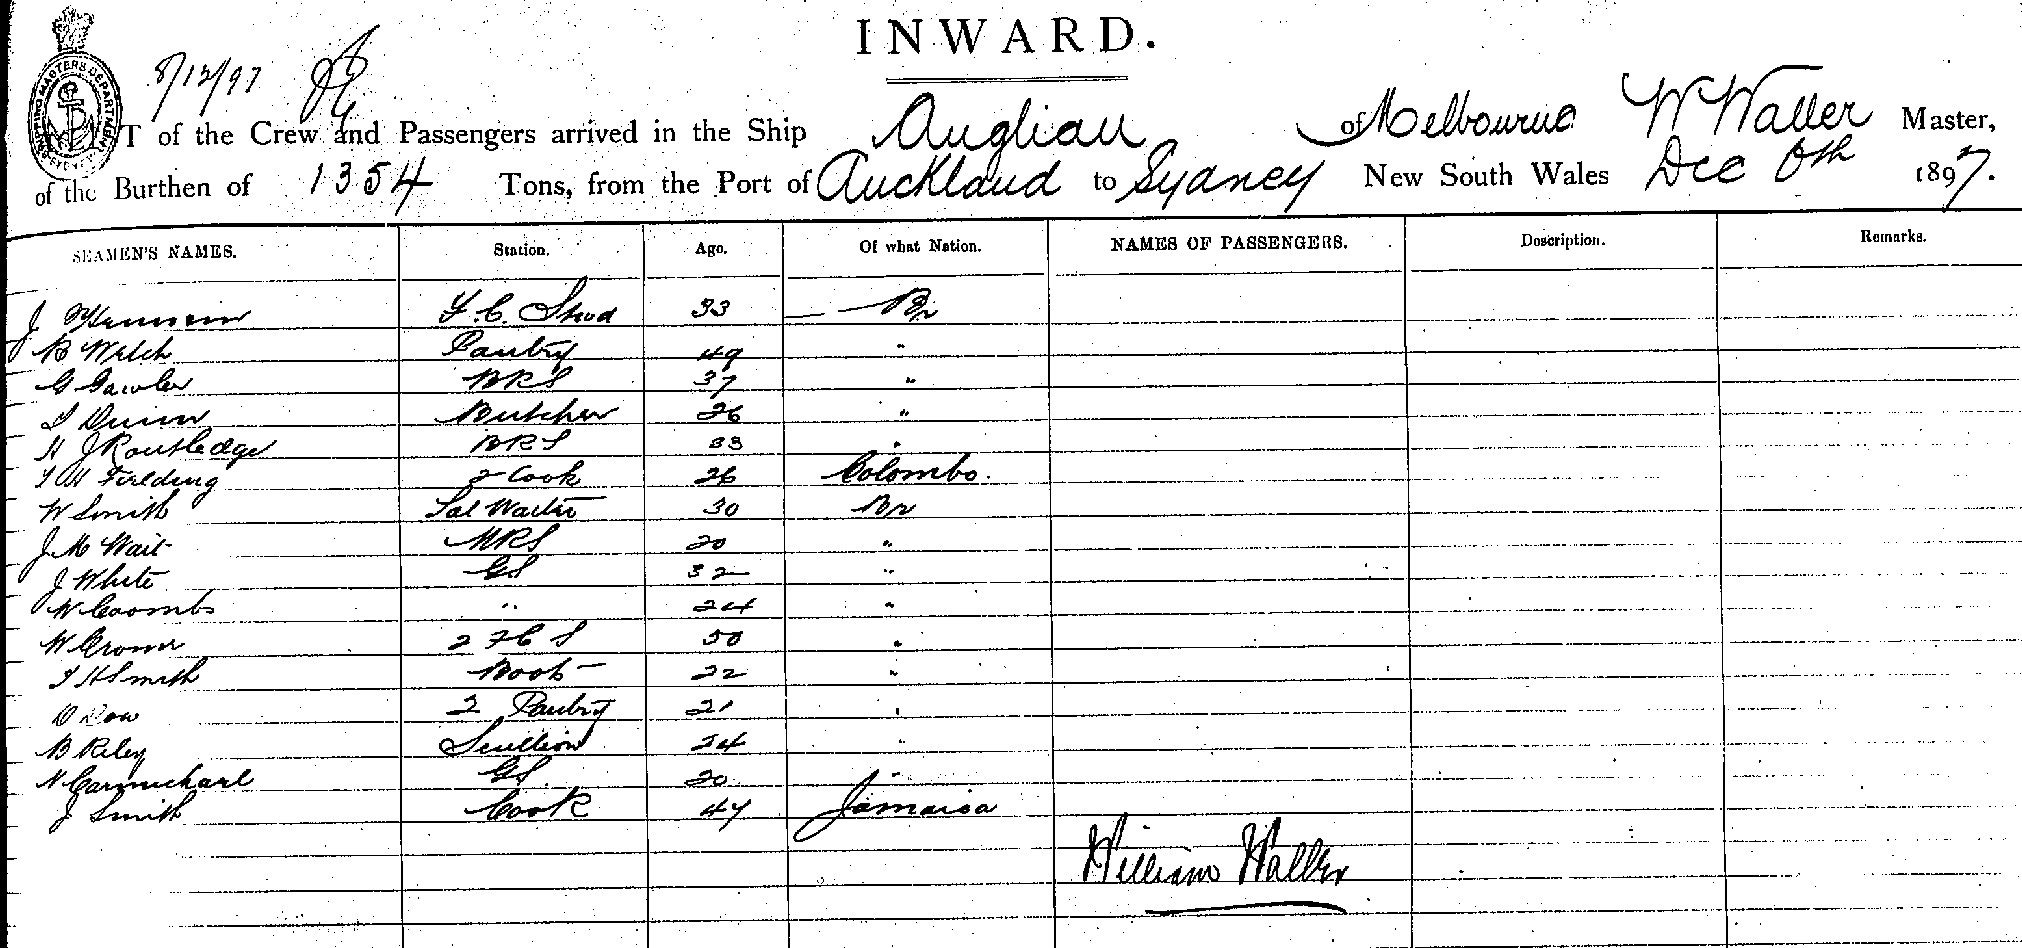 INWARD.
8/12/97
SHIPPING MASTERS DEPARTMENT
T of the Crew and Passengers arrived in the Ship Anglian of Melbourne W Waller Master,
of the Burthen of 1354 Tons, from the Port of Auckland to Sydney New South Wales Dec 8th 1897.
SEAMEN'S NAMES. Station. Age. Of what Nation. NAMES OF PASSENGERS. Description. Remarks.
J F. C. Stwd 33 Br
B Welch Pantry 49 "
G Gawler BRS 37 "
Quinn Butcher 26 "
H J Routledge BRS 33 "
Fielding 2 Cook 26 Colombo.
W Smith Sal Waiter 30 Br
J M Wait MRS 20 "
J White GS 32 "
W Coombs " 24 "
W 2 F C S 50 "
H Smith Boots 22 "
D Dow 2 Pantry 21 "
B Riley Scullion 24 "
N Carmichael GS 20 "
J Smith Cook 47 Jamaica
William Waller